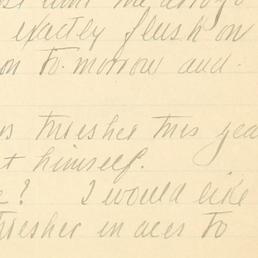 exactly flush on
on to-morrow and
thresher this yea
t himself.
? I would like
thresher in acs to